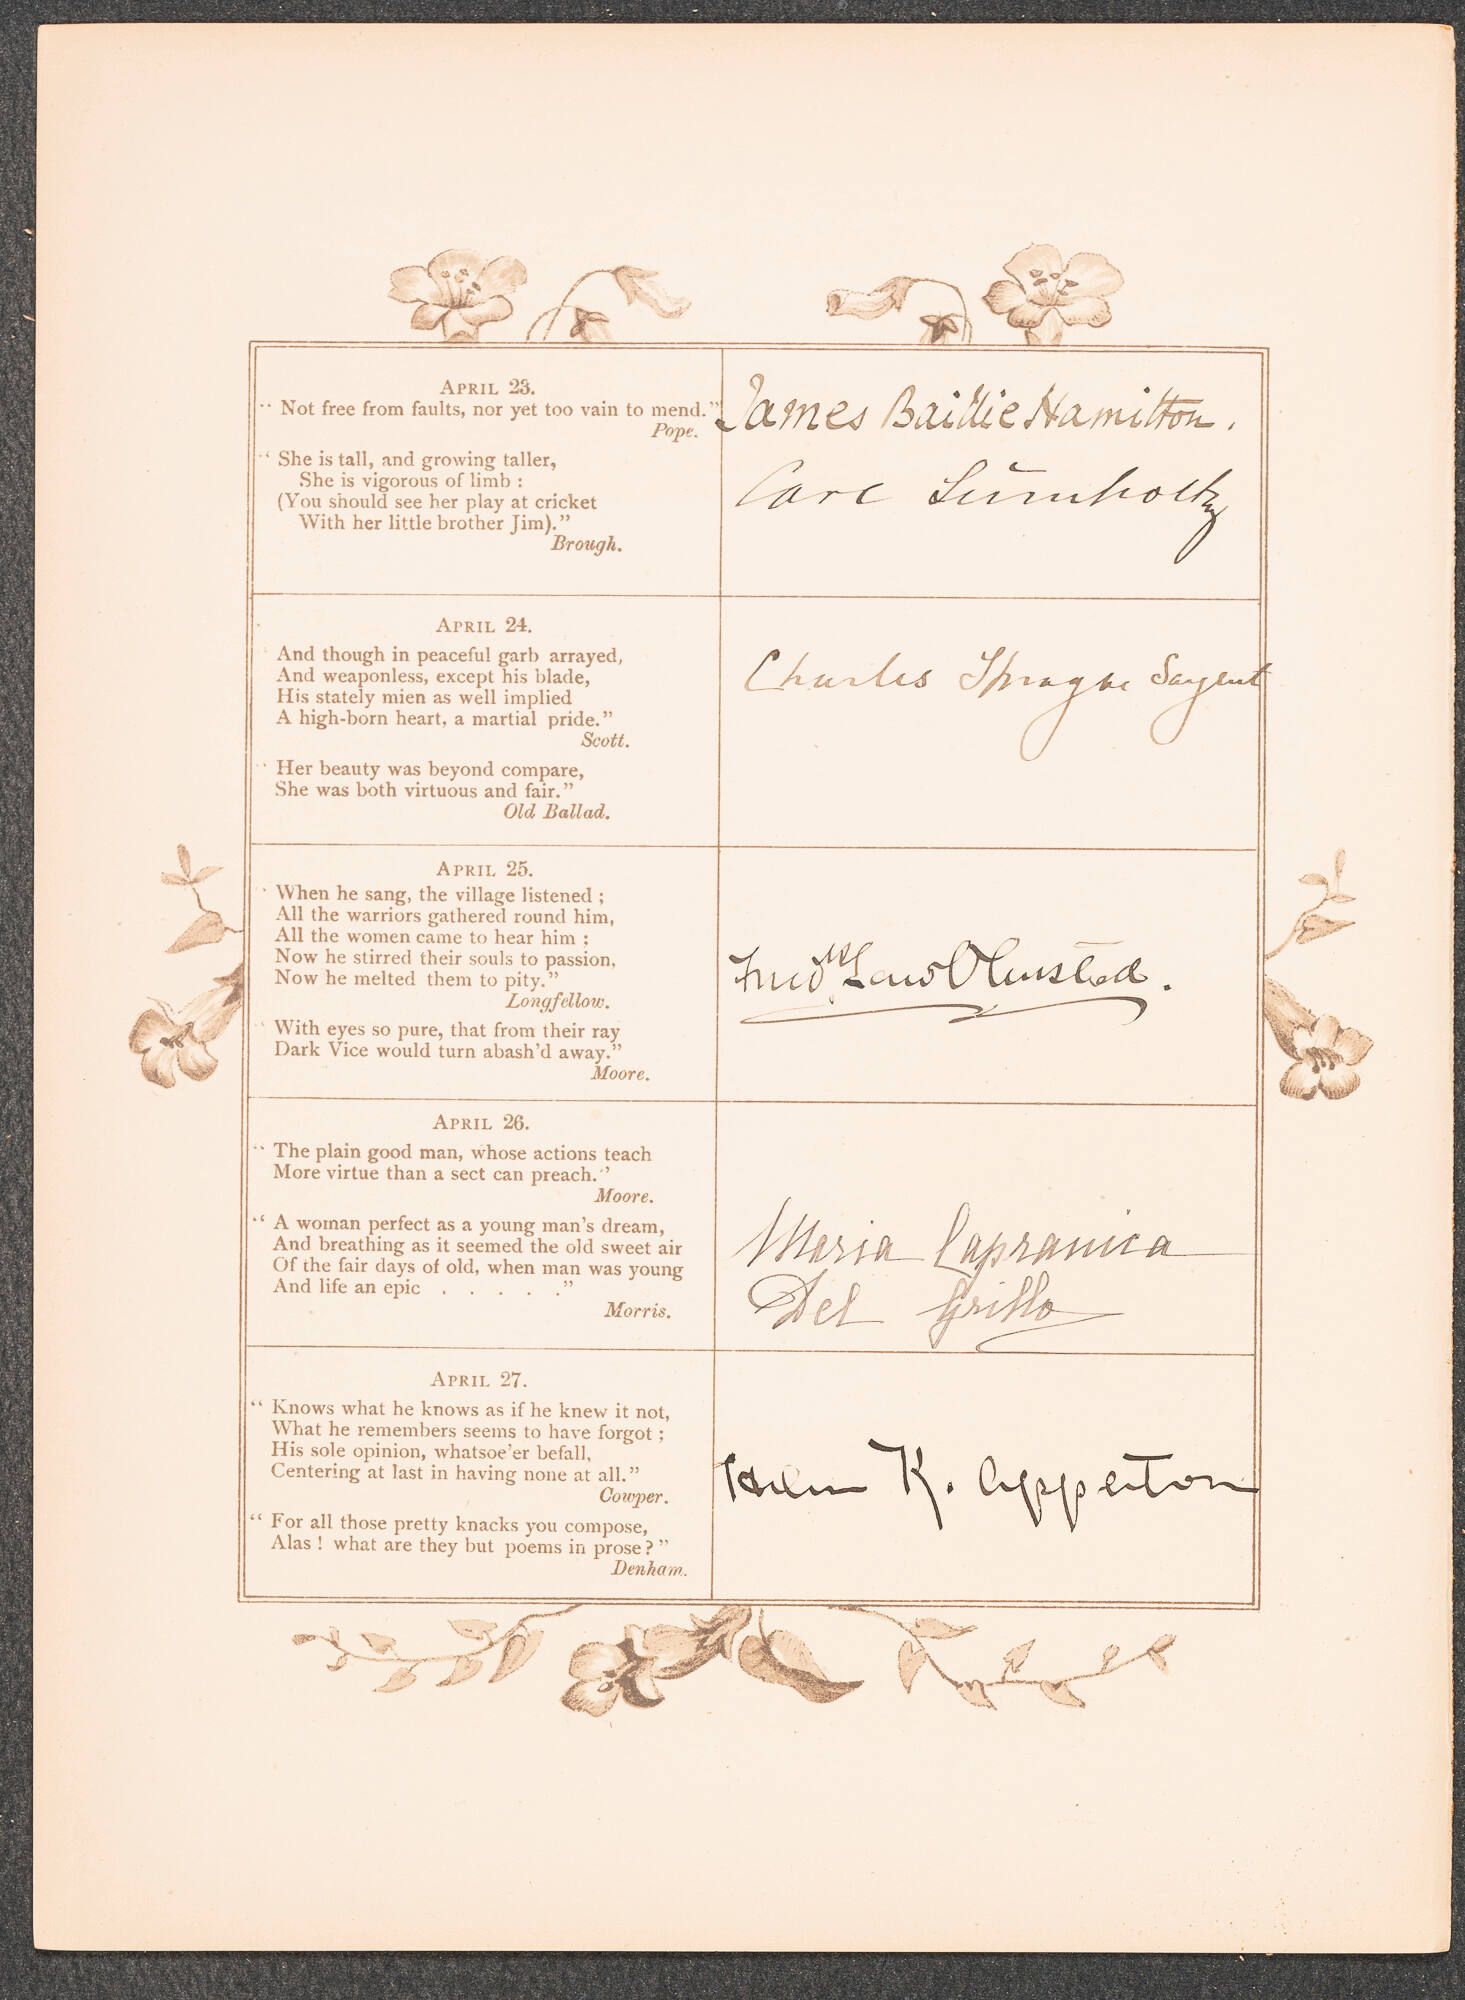 APRIL 23.
"Not free from faults, nor yet too vain to mend."
Pope.
"She is tall, and growing taller,
She is vigorous of limb :
(You should see her play at cricket
With her little brother Jim)."
Brough.
James Baillie Hamilton.
Carl Lumholtz
APRIL 24.
And though in peaceful garb arrayed,
And weaponless, except his blade,
His stately mien as well implied
A high-born heart, a martial pride."
Scott.
Her beauty was beyond compare,
She was both virtuous and fair."
Old Ballad.
Charles Sprague Sargent
APRIL 25.
When he sang, the village listened ;
All the warriors gathered round him,
All the women came to hear him ;
Now he stirred their souls to passion,
Now he melted them to pity."
Longfellow.
With eyes so pure, that from their ray
Dark Vice would turn abash'd away."
Moore.
Fredk Law Olmsted.
APRIL 26.
"The plain good man, whose actions teach
More virtue than a sect can preach."
Moore.
"A woman perfect as a young man's dream,
And breathing as it seemed the old sweet air
Of the fair days of old, when man was young
And life an epic . . . . ."
Morris.
Maria Capranica
Del Grillo
APRIL 27.
"Knows what he knows as if he knew it not,
What he remembers seems to have forgot ;
His sole opinion, whatsoe'er befall,
Centering at last in having none at all."
Cowper.
"For all those pretty knacks you compose,
Alas ! what are they but poems in prose ?"
Denham.
Helen K. Apperton